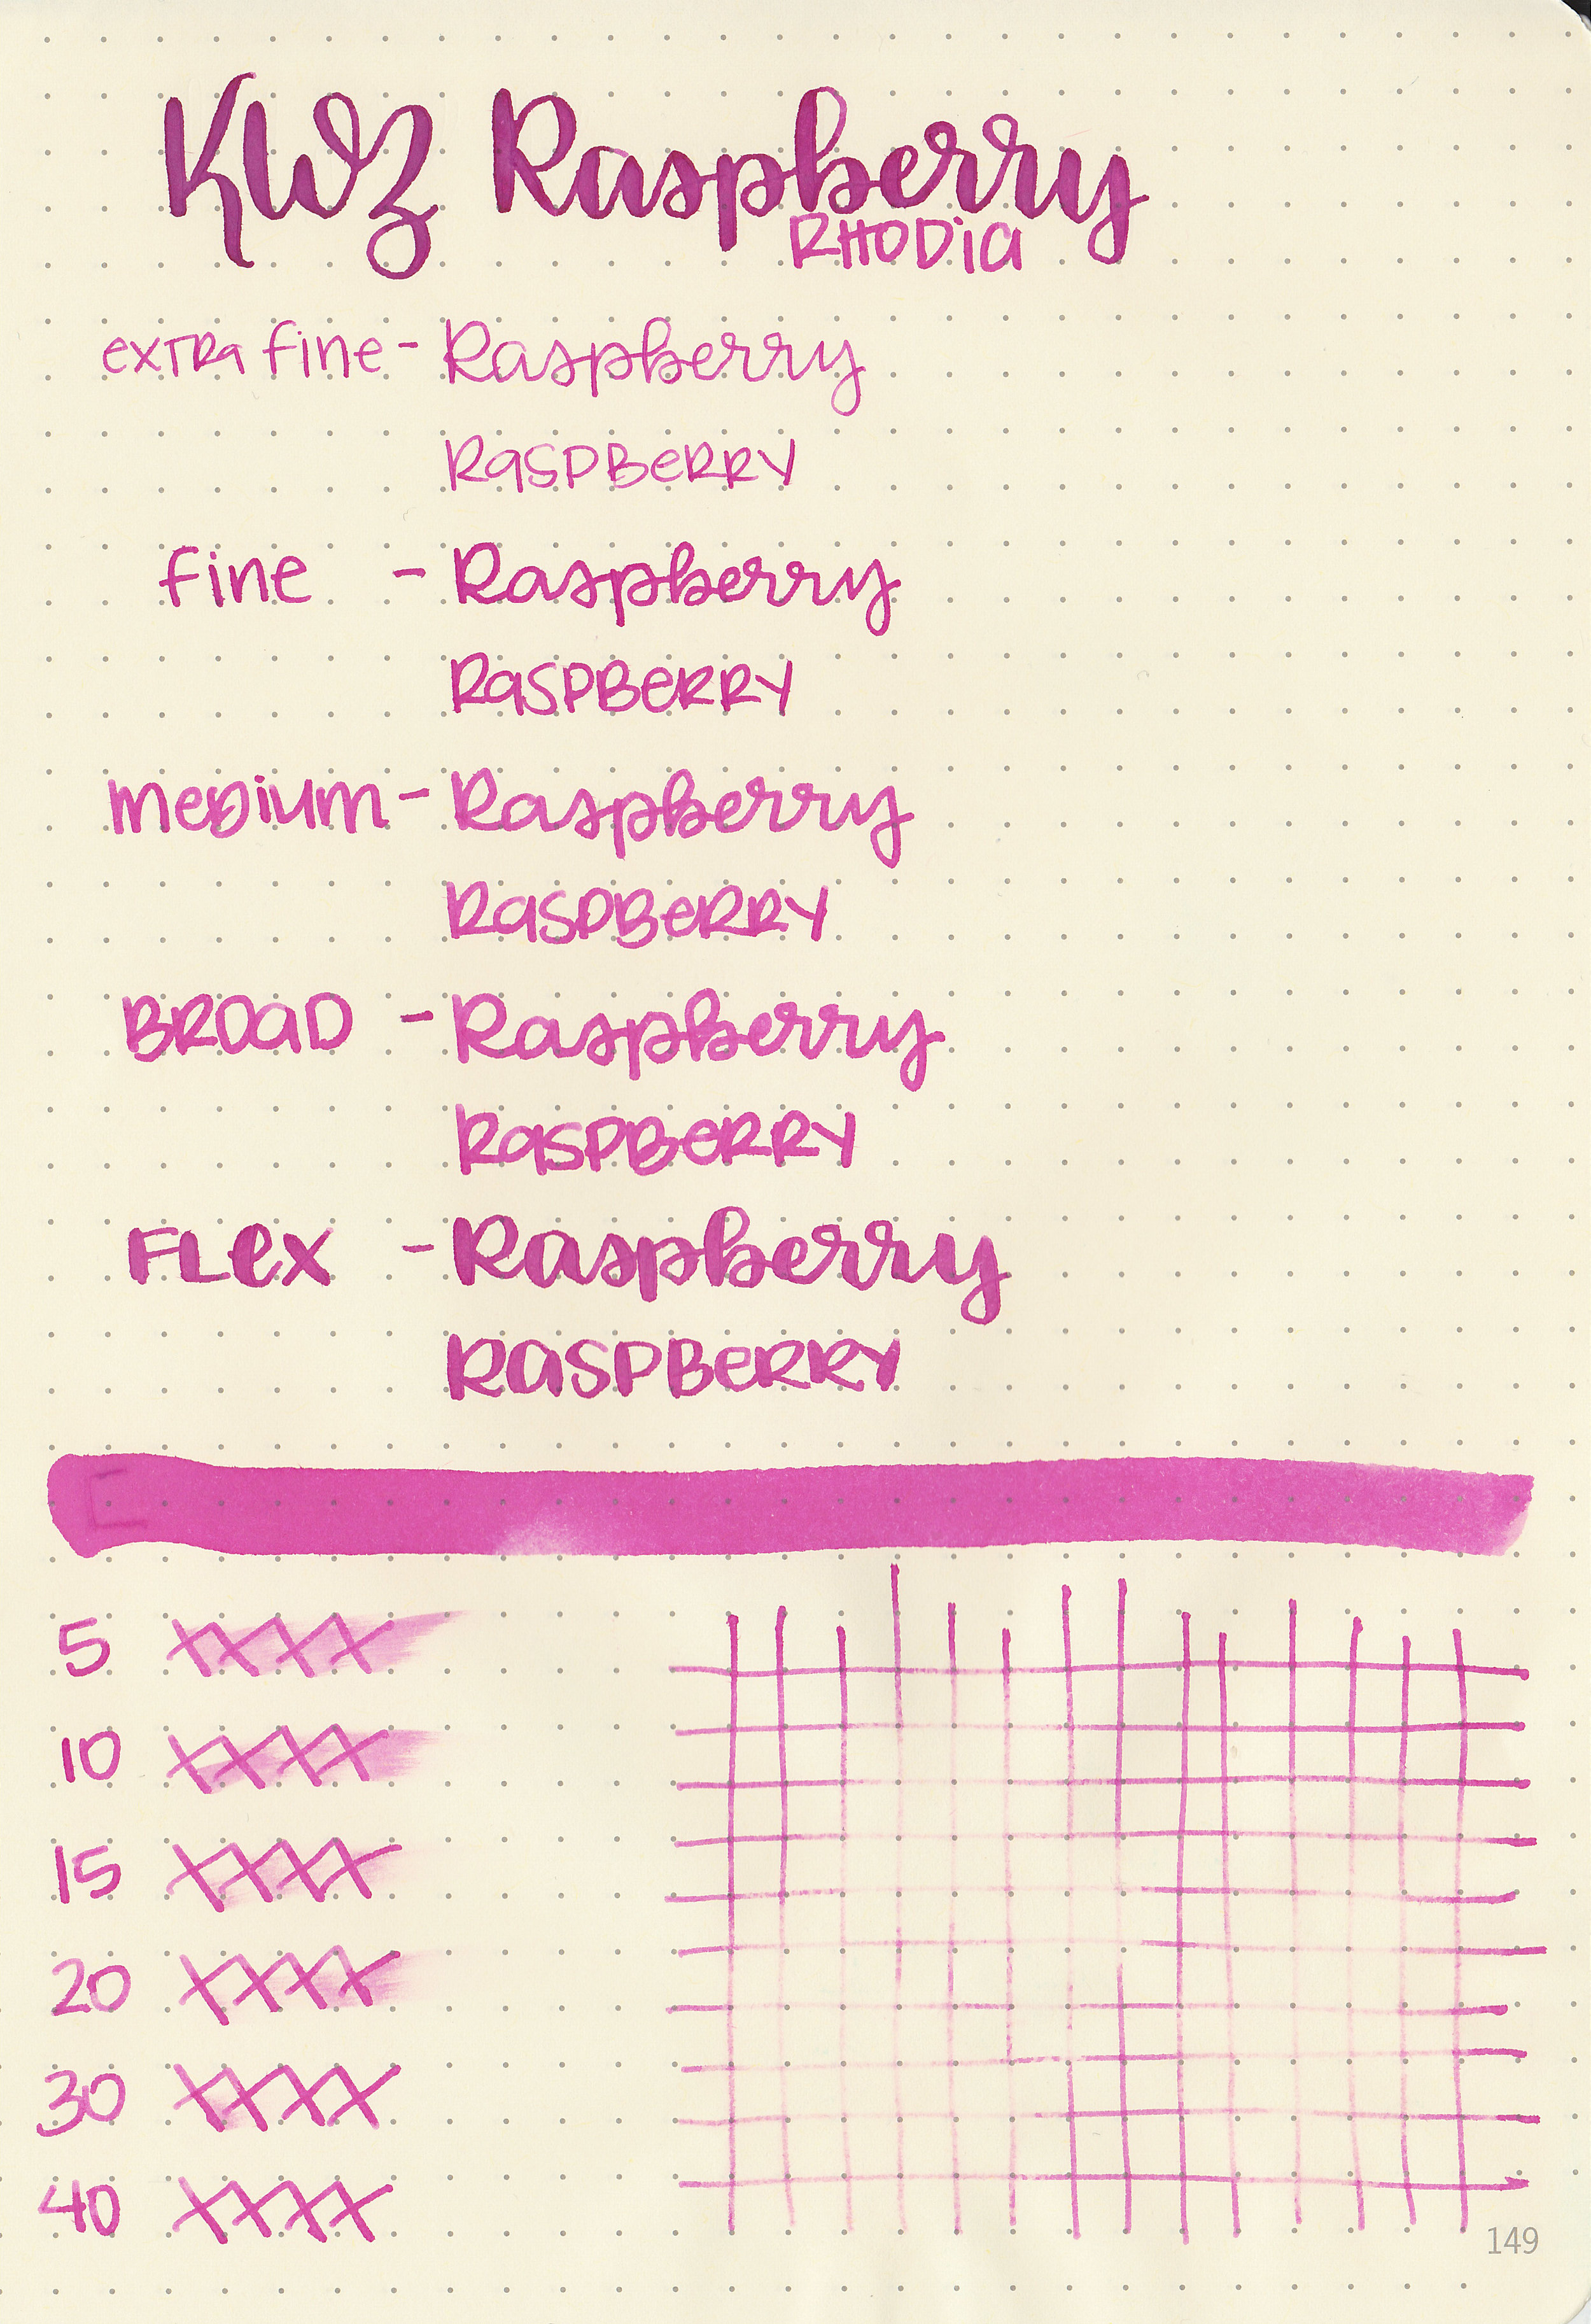 KWZ Raspberry
RHODia
exTRa fine - Raspberry
RaSPBeRRY
fine - Raspberry
RaSPBeRRY
meDium - Raspberry
RaSPBeRRY
BROaD - Raspberry
RaSPBeRRY
FLex - Raspberry
RaSPBeRRY
5 xxxx
10 xxxx
15 xxxx
20 xxxx
30 xxxx
40 xxxx
149